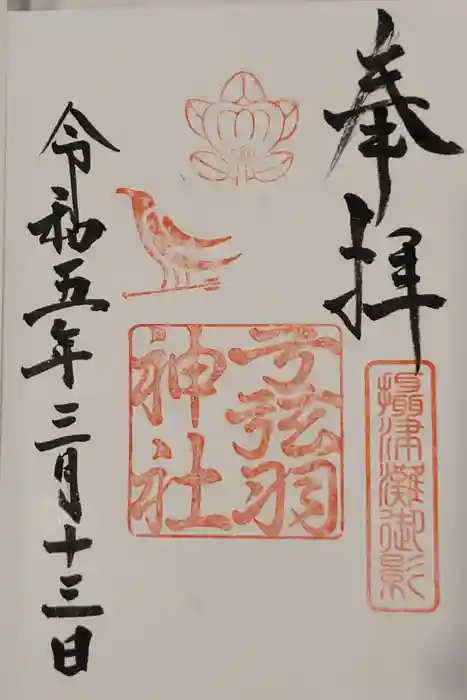 奉拝
摂津灘御影
弓弦羽
神社
令和五年三月十三日